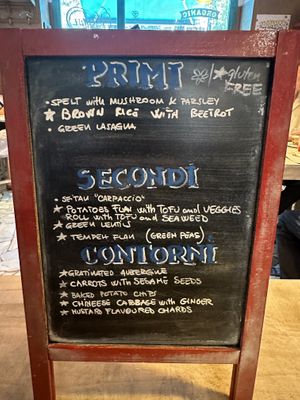 PRIMI ★ gluten FREE
· SPELT with MUSHROOM & PARSLEY
★ BROWN RICE WITH BEETROT
· GREEN LASAGNA
SECONDI
· SEITAN "CARPACCIO"
★ POTATOES FLAN with TOFU and VEGGIES
ROLL with TOFU and SEAWEED
★ GREEN LENTILS
★ TEMPEH FLAN (GREEN PEAS)
CONTORNI
★ GRATINATED AUBERGINE
★ CARROTS with SESAME SEEDS
★ BAKED POTATO CHIPS
★ CHINEESE CABBAGE with GINGER
★ MUSTARD FLAVOURED CHARDS